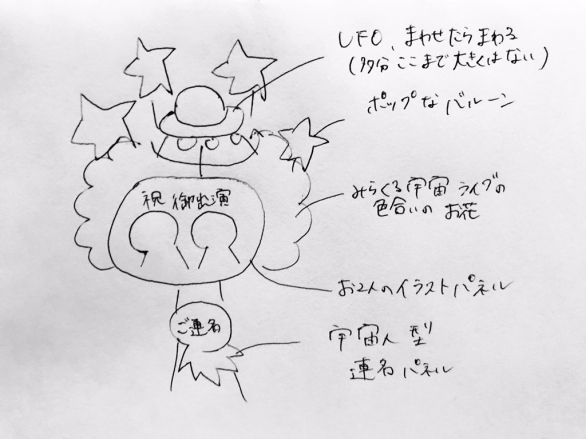 UFO、まわせたらまわる
(多分ここまで大きくはない)
ポップなバルーン
みらくる宇宙ライブの
色合いのお花
祝 御出演
お2人のイラストパネル
ご連名
宇宙人型
連名パネル